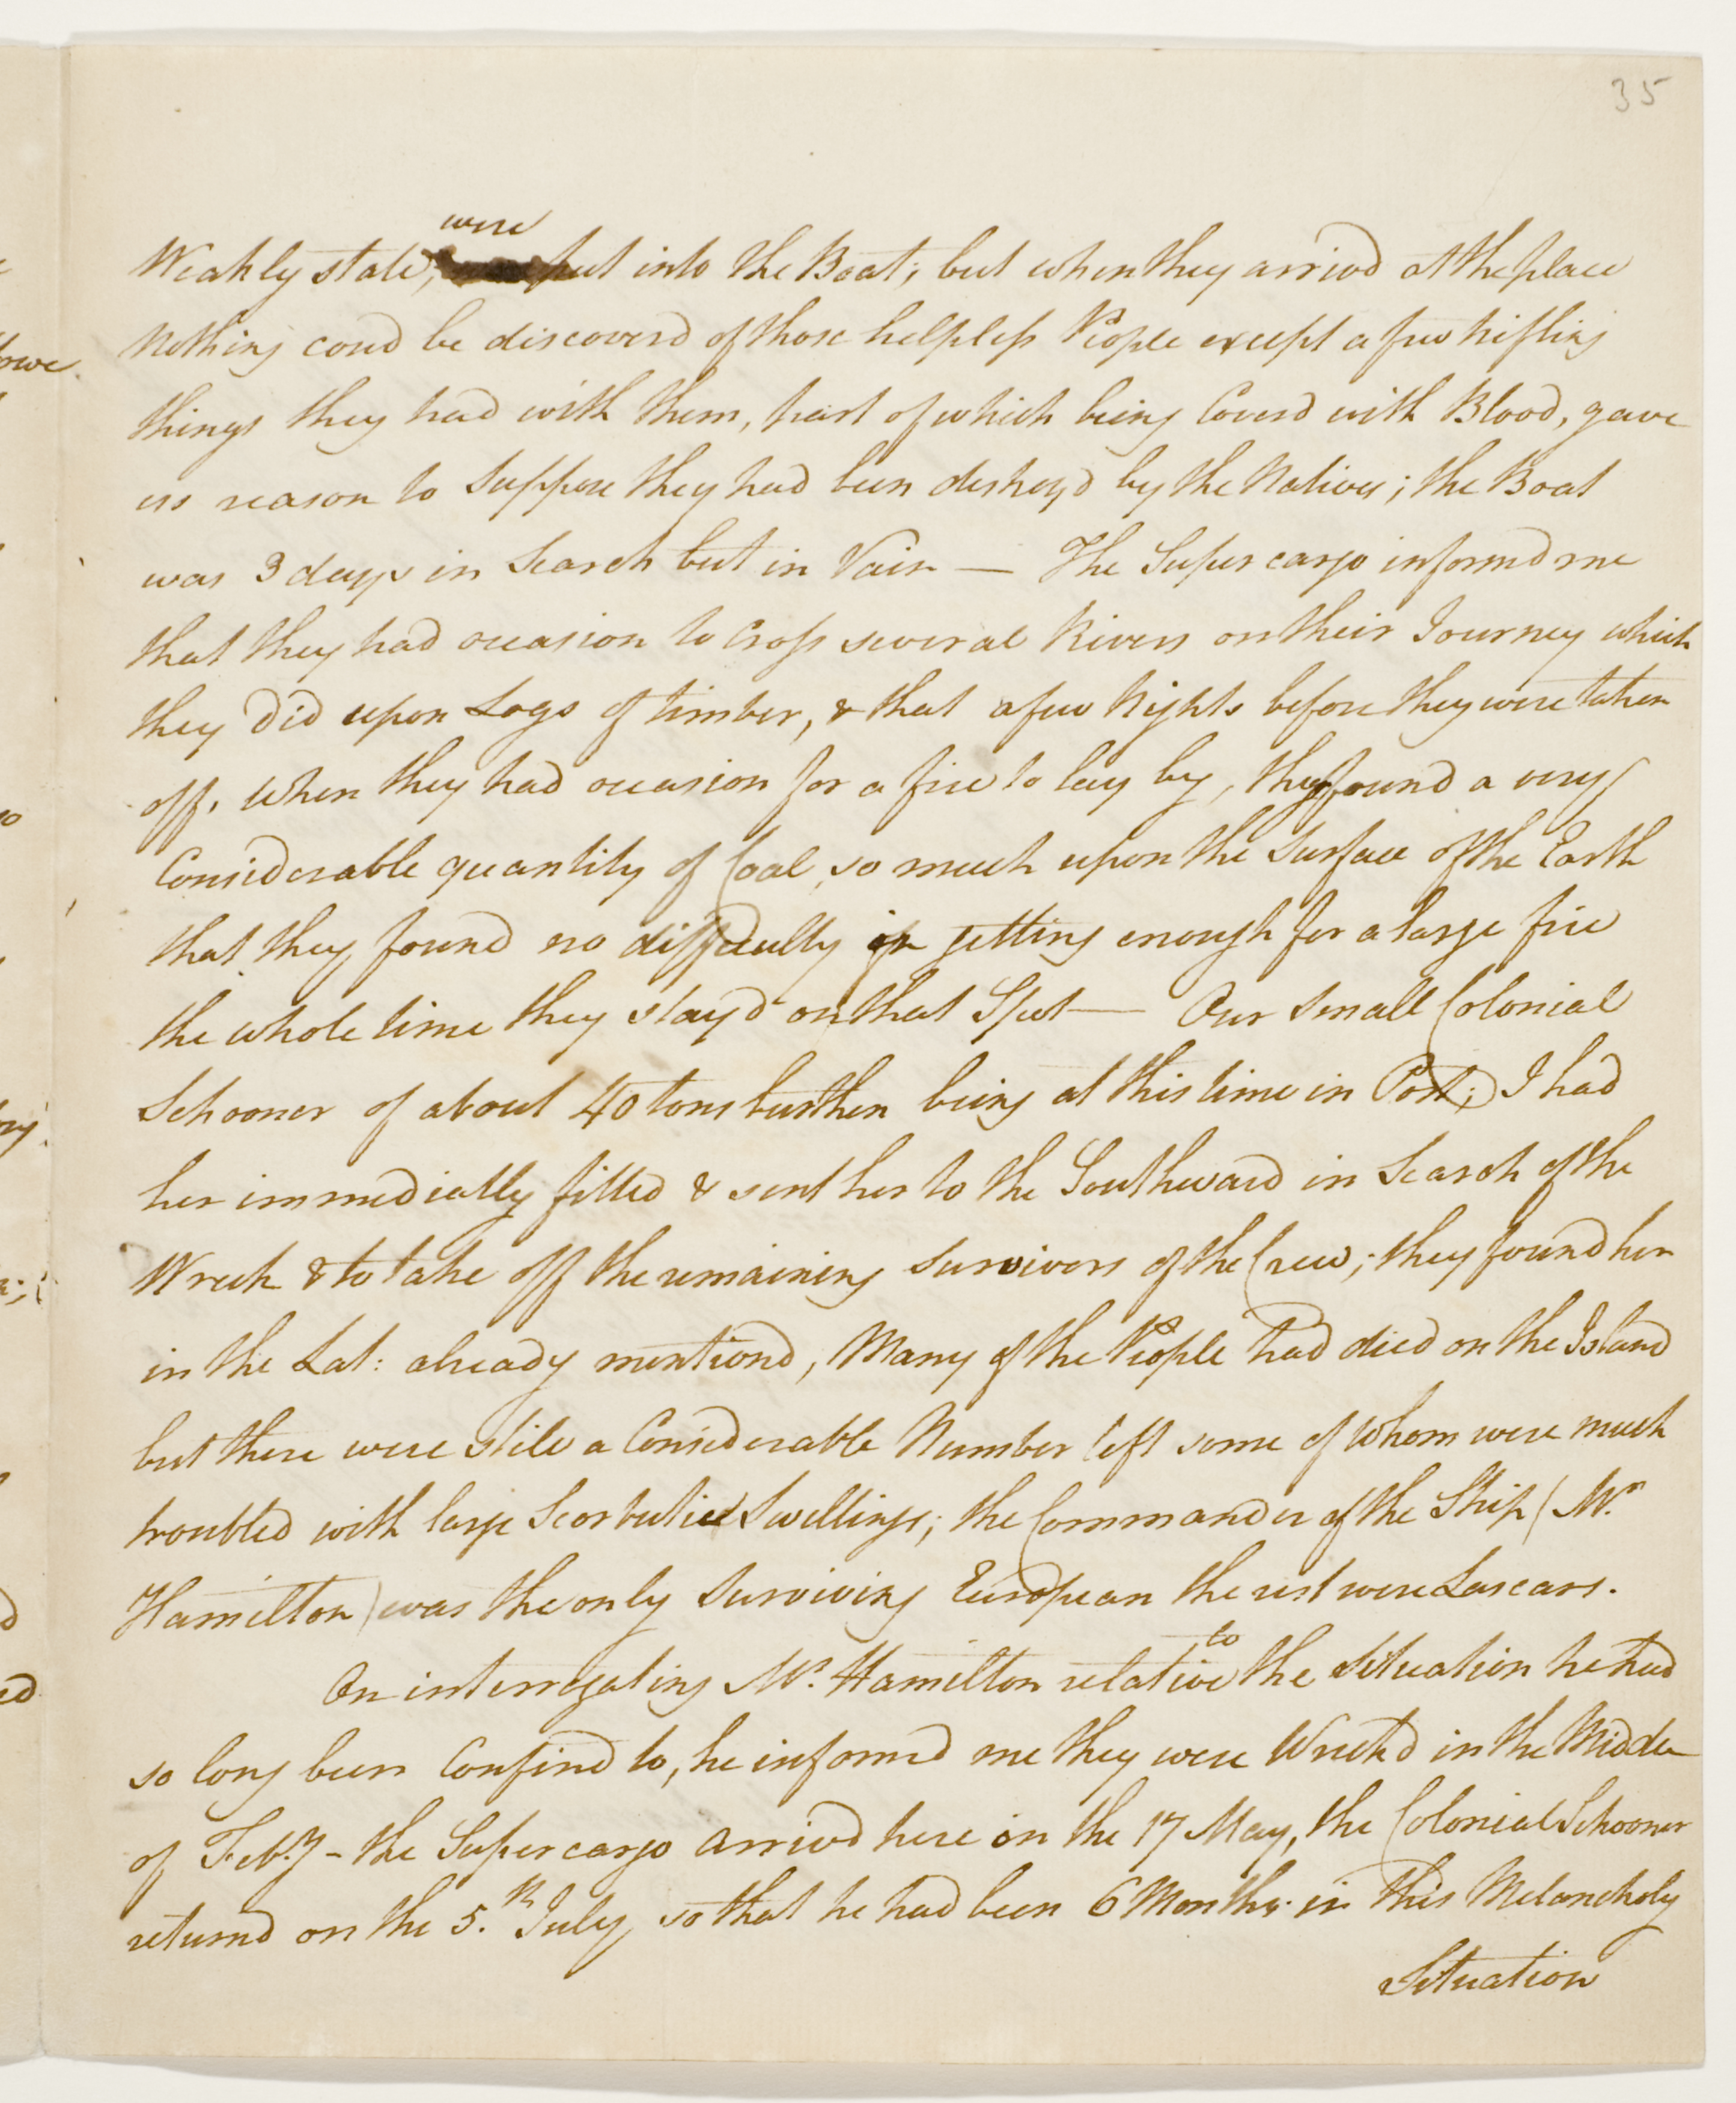 35
were
Weakly state, put into the Boat; but when they arrivd at the place
Nothing coud be discoverd of those helpless People except a few trifling
things they had with them, part of which being Coverd with Blood, gave
us reason to suppose they had been destroy'd by the Natives; the Boat
was 3 days in Search but in Vain — The Supercargo informd me
that they had occasion to Cross several Rivers on their Journey which
they did upon Logs of timber, & that a few Nights before they were taken
off, when they had occasion for a fire to lay by, they found a very
Considerable quantity of Coal, so much upon the Surface of the Earth
that they found no difficulty in getting enough for a large fire
the whole time they stay'd on that Spot — Our Small Colonial
Schooner of about 40 tons burthen being at this time in Port; I had
her immediatly fitted & sent her to the Southward in Search of the
Wreck & to take off the remaining survivors of the Crew; they found her
in the Lat: already mentiond, Many of the People had died on the Island
but there were stile a Considerable Number left some of whom were much
troubled with large Scorbutic Swellings; the Commander of the Ship (Mr.
Hamilton) was the only Surviving European the rest were Lascars.
On interrogating Mr. Hamilton relative to the Situation he had
so long been Confind to, he informd me they were Wreckd in the Middle
of Feby. - the Supercargo arrivd here on the 17 May, the Colonial Schooner
returnd on the 5.th July, so that he had been 6 Months in this Melancholy
Situation